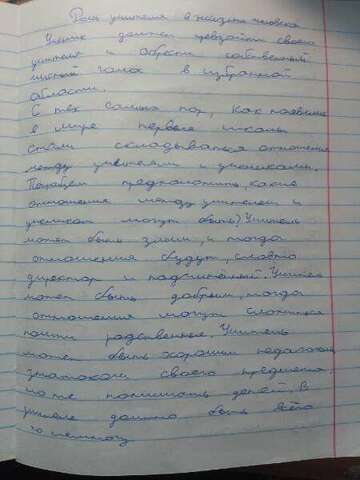 Роль учителя в жизни человека
Ученик должен превзойти своего
учителя и обрести собственный
чистый голос в избранной
области.
С тех самых пор, как появились
в мире первые школы
стали складываться отношения
между учителями и учениками.
Попробуем предположить, какие
отношения между учителем и
учеником могут быть? Учитель
может быть злым, и тогда
отношения будут, словно
директор и подчинённый. Учитель
может быть добрым, тогда
отношения могут сложиться
почти родственные. Учитель
может быть хорошим педагогом,
знатоком своего предмета,
но не понимать детей. В
учителе должно быть всего
по немногу